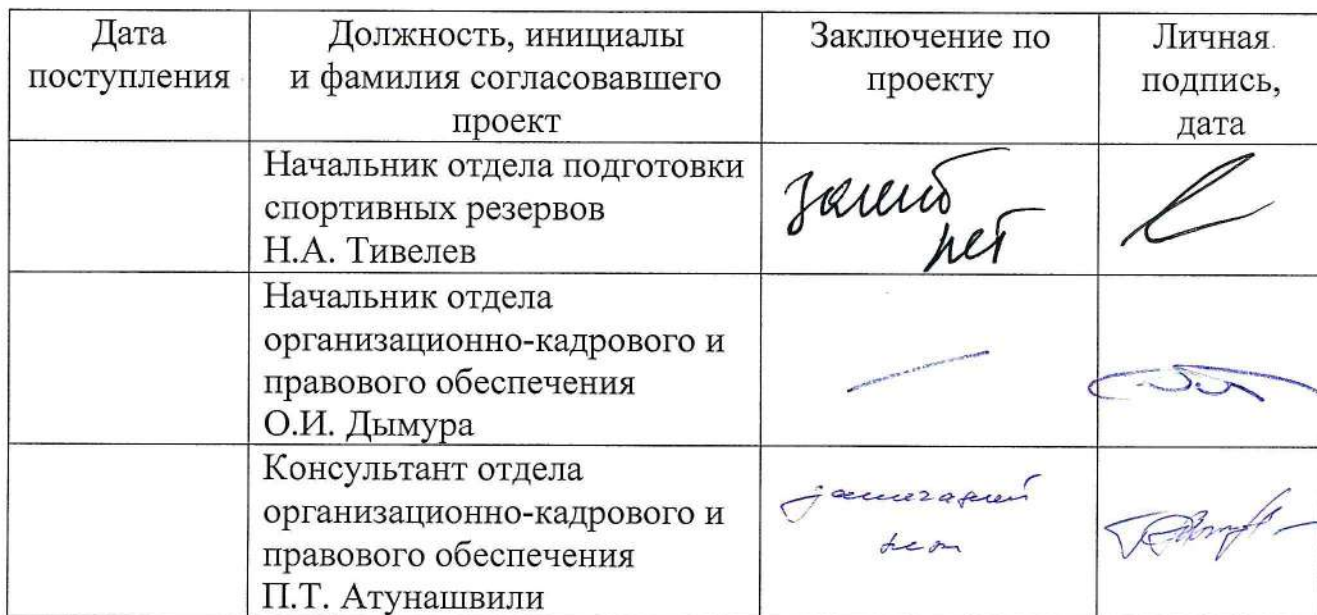 Дата
поступления
Должность, инициалы
и фамилия согласовавшего
проект
Заключение по
проекту
Личная
подпись,
дата
Начальник отдела подготовки
спортивных резервов
Н.А. Тивелев
нет
Начальник отдела
организационно-кадрового и
правового обеспечения
О.И. Дымура
Консультант отдела
организационно-кадрового и
правового обеспечения
П.Т. Атунашвили
замечаний
нет